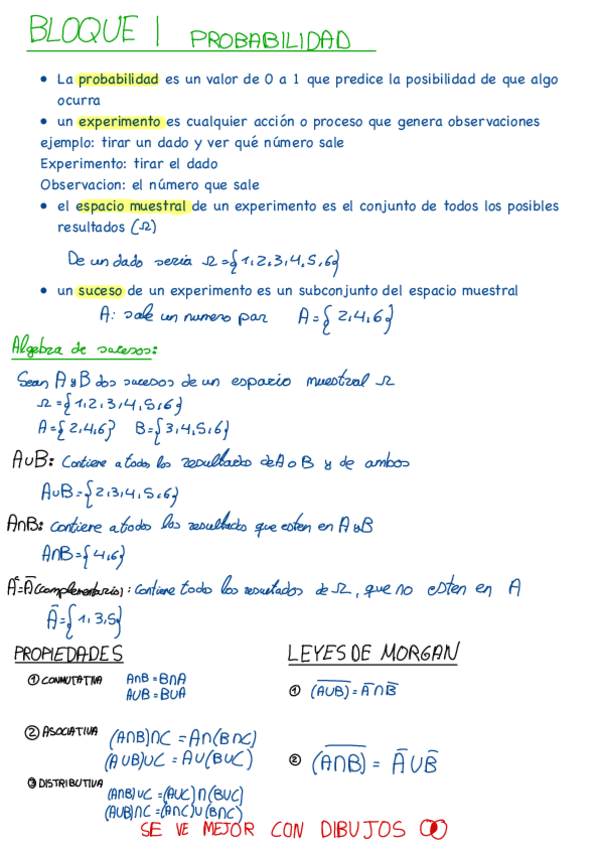 BLOQUE 1 PROBABILIDAD
• La probabilidad es un valor de 0 a 1 que predice la posibilidad de que algo
ocurra
• un experimento es cualquier acción o proceso que genera observaciones
ejemplo: tirar un dado y ver qué número sale
Experimento: tirar el dado
Observacion: el número que sale
• el espacio muestral de un experimento es el conjunto de todos los posibles
resultados (Ω)
De un dado seria Ω={1,2,3,4,5,6}
• un suceso de un experimento es un subconjunto del espacio muestral
A: sale un numero par A={2,4,6}
Algebra de sucesos:
Sean A y B dos sucesos de un espacio muestral Ω
Ω={1,2,3,4,5,6}
A={2,4,6} B={3,4,5,6}
A∪B: Contiene a todos los resultados de A o B y de ambos
A∪B={2,3,4,5,6}
A∩B: Contiene a todos los resultados que esten en A y B
A∩B={4,6}
Aᶜ=Ā (complementario): Contiene todo los resultados de Ω, que no esten en A
Ā={1,3,5}
PROPIEDADES
① CONMUTATIVA A∩B=B∩A
A∪B=B∪A
② ASOCIATIVA (A∩B)∩C=A∩(B∩C)
(A∪B)∪C=A∪(B∪C)
③ DISTRIBUTIVA (A∩B)∪C=(A∪C)∩(B∪C)
(A∪B)∩C=(A∩C)∪(B∩C)
LEYES DE MORGAN
① (A̅∪̅B̅)=A̅∩B̅
② (A̅∩̅B̅)=A̅∪B̅
SE VE MEJOR CON DIBUJOS